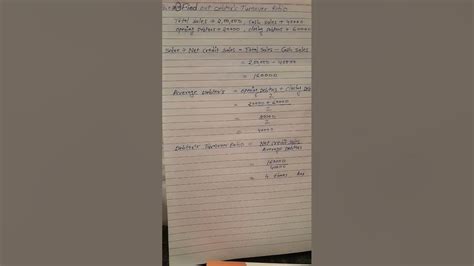 Find out Debtor's Turnover Ratio
Total Sales = 2,00,000, Cash Sales = 40000
Opening Debtors = 20000, closing Debtors = 60000
Net Credit Sales = Total Sales - Cash Sales
= 200000 - 40000
= 160000
Average Debtor's = Opening Debtors + Closing Deb
2
= 20000 + 60000
2
= 80000
2
= 40000
Debtor's Turnover Ratio = Net Credit Sales
Average Debtors
= 160000
40000
= 4 times Ans